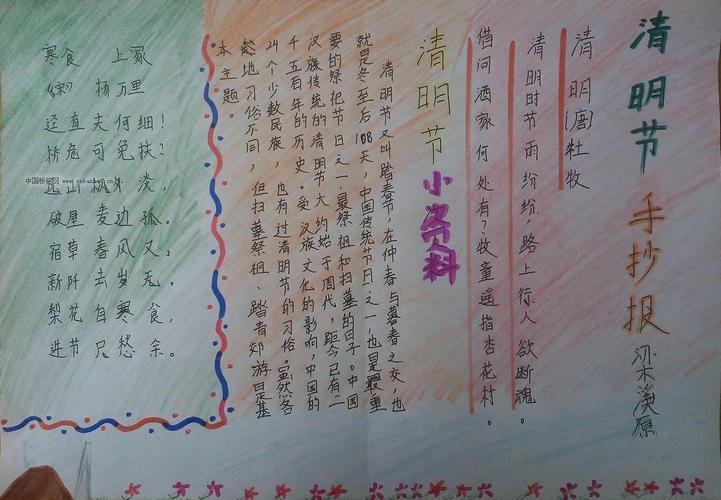 清明节 手抄报
清明(唐)杜牧
清明时节雨纷纷,路上行人欲断魂。
借问酒家何处有?牧童遥指杏花村。
清明节小资料
清明节又叫踏春节,在仲春与暮春之交,也
就是冬至后108天,中国传统节日之一,也是最重
要的祭祀节日之一.最祭祖和扫墓的日子。中国
汉族传统的清明节大约始于周代,距今已有二
千五百年的历史。受汉族文化的影响,中国的
24个少数民族,也有过清明节的习俗。虽然各
地习俗不同,但扫墓祭祖、踏青郊游是基
本主题。
寒食 上冢
《宋》 杨万里
迳直夫何细!
桥危可免扶?
远山枫外淡,
破屋麦边孤。
宿草春风又,
新阡去岁无。
梨花自寒食,
进节只愁余。
中国板报网